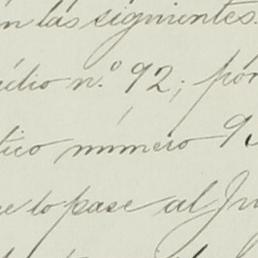 n las siguientes
dio n.° 92; pór
tico número 93
e lo pase al Ju